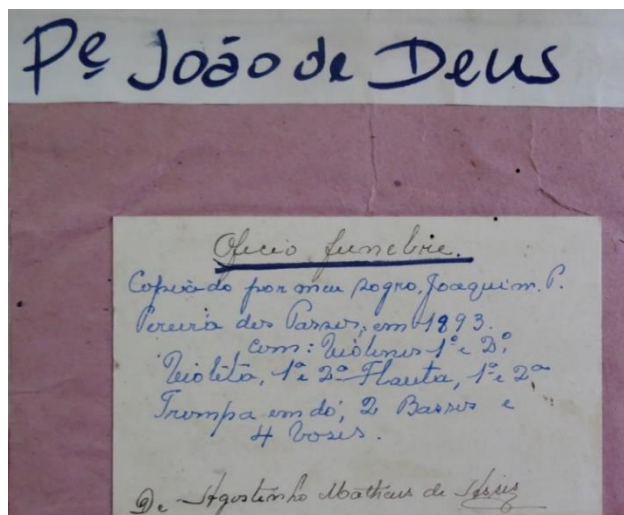 Pe João de Deus
Oficio funebre.
Copiado por meu sogro, Joaquim. P.
Pereira dos Passos, em 1893.
com: Violinos 1º e 2º,
Violeta, 1ª e 2ª Flauta, 1ª e 2ª
Trompa em dó, 2 Baxos e
4 vozes.
De Agostinho Matheus de Assis